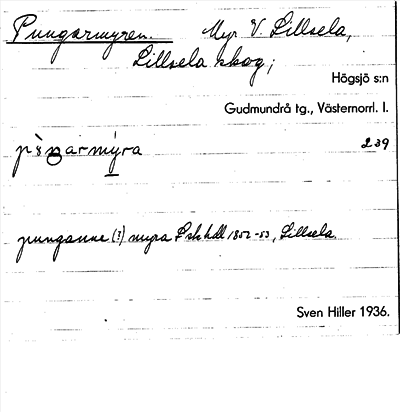 Pungarmyren. Myr V. Lillsela,
Lillsela skog;
Högsjö s:n
Gudmundrå tg., Västernorrl. l.
239
punganne (?) myra Lskhdl 1852-53, Lillsela
Sven Hiller 1936.